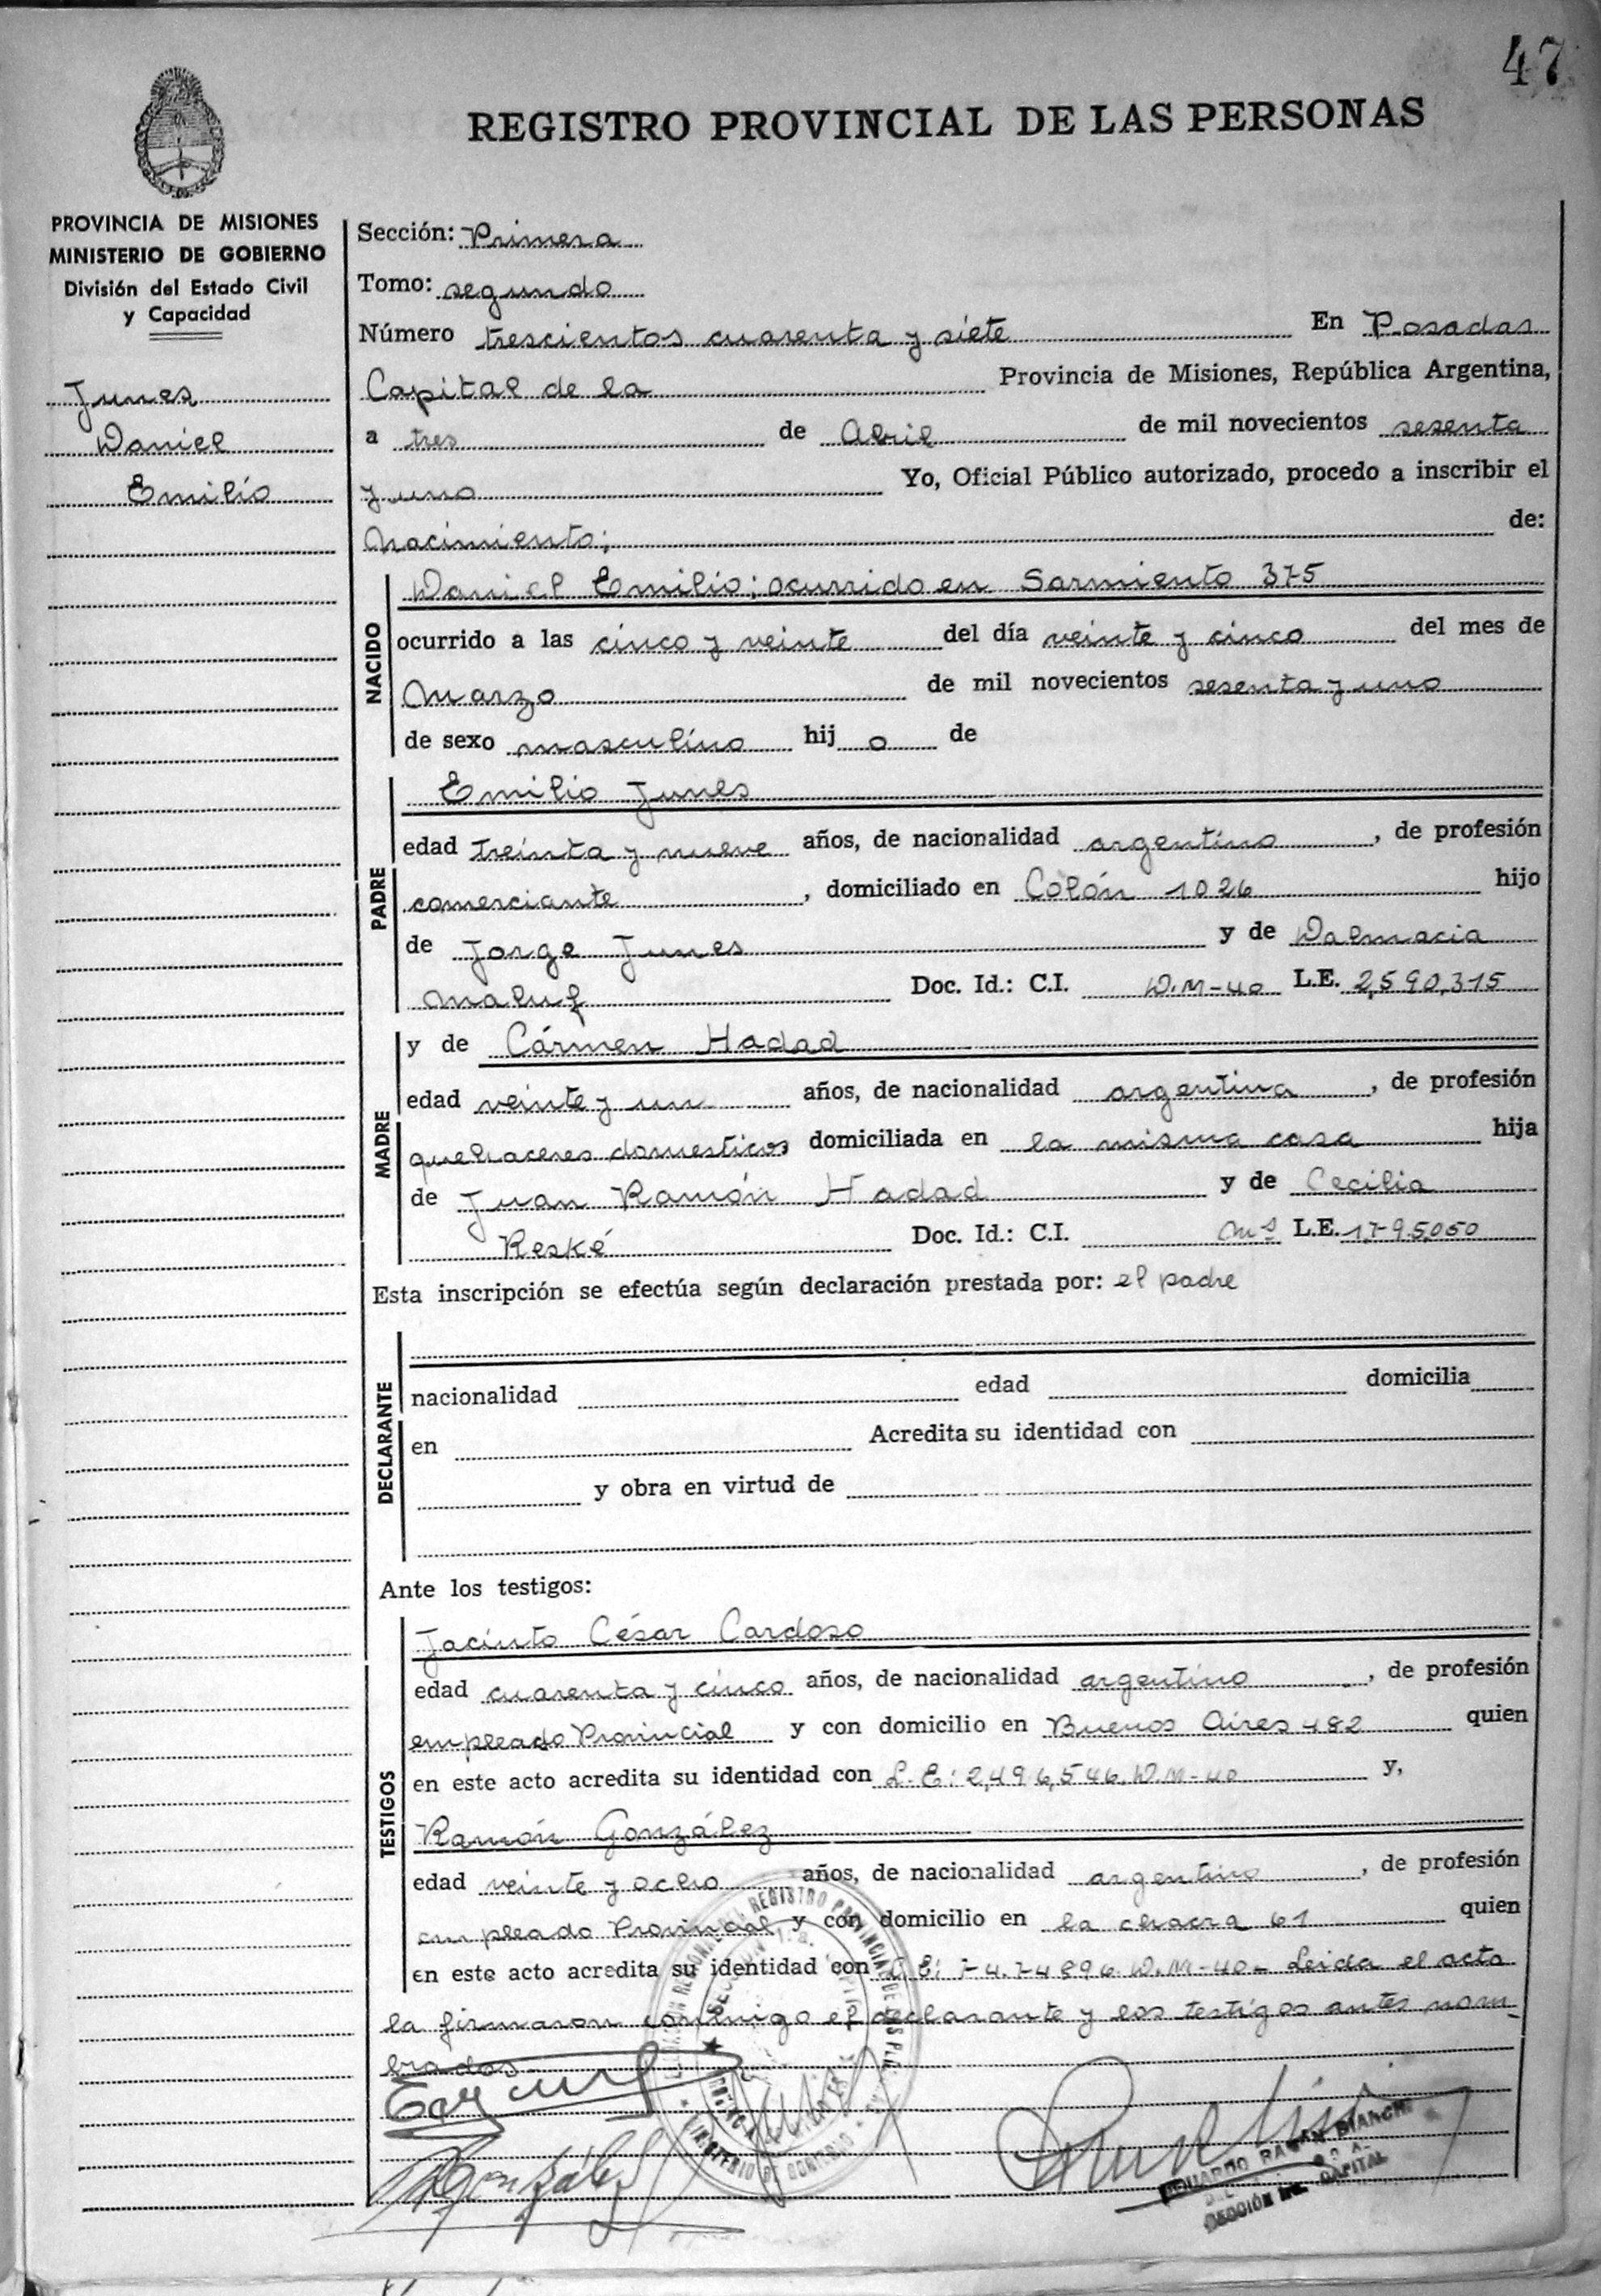 47
REGISTRO PROVINCIAL DE LAS PERSONAS
PROVINCIA DE MISIONES
MINISTERIO DE GOBIERNO
División del Estado Civil
y Capacidad
Junes
Daniel
Emilio
Sección: Primera
Tomo: segundo
Número trescientos cuarenta y siete En Posadas
Capital de la Provincia de Misiones, República Argentina,
a tres de Abril de mil novecientos sesenta
y uno Yo, Oficial Público autorizado, procedo a inscribir el
Nacimiento; de:
NACIDO
Daniel Emilio; ocurrido en Sarmiento 375
ocurrido a las cinco y veinte del día veinte y cinco del mes de
Marzo de mil novecientos sesenta y uno
de sexo masculino hij o de
PADRE
Emilio Junes
edad treinta y nueve años, de nacionalidad argentino, de profesión
comerciante, domiciliado en Colón 1026 hijo
de Jorge Junes y de Dalmacia
Maluf Doc. Id.: C.I. D.M-40 L.E. 2,590,315
MADRE
y de Cármen Hadad
edad veinte y un años, de nacionalidad argentina, de profesión
quehaceres domesticos domiciliada en la misma casa hija
de Juan Ramón Hadad y de Cecilia
Reské Doc. Id.: C.I. L.E. 1,795,050
Esta inscripción se efectúa según declaración prestada por: el padre
DECLARANTE
nacionalidad edad domicilia
en Acredita su identidad con
y obra en virtud de
Ante los testigos:
TESTIGOS
Jacinto César Cardoso
edad cuarenta y cinco años, de nacionalidad argentino, de profesión
empleado Provincial y con domicilio en Buenos Aires 482 quien
en este acto acredita su identidad con L.E: 2,496,546. D.M-40 y,
Ramón González
edad veinte y ocho años, de nacionalidad argentino, de profesión
empleado Provincial y con domicilio en la chacra 61 quien
en este acto acredita su identidad con L.E: 7.474896 D.M-40- Leida el acta
la firmaron conmigo el declarante y los testigos antes nom-
brados.
RGonzález
EDUARDO RAMÓN BIANCHI
SECCIÓN CAPITAL